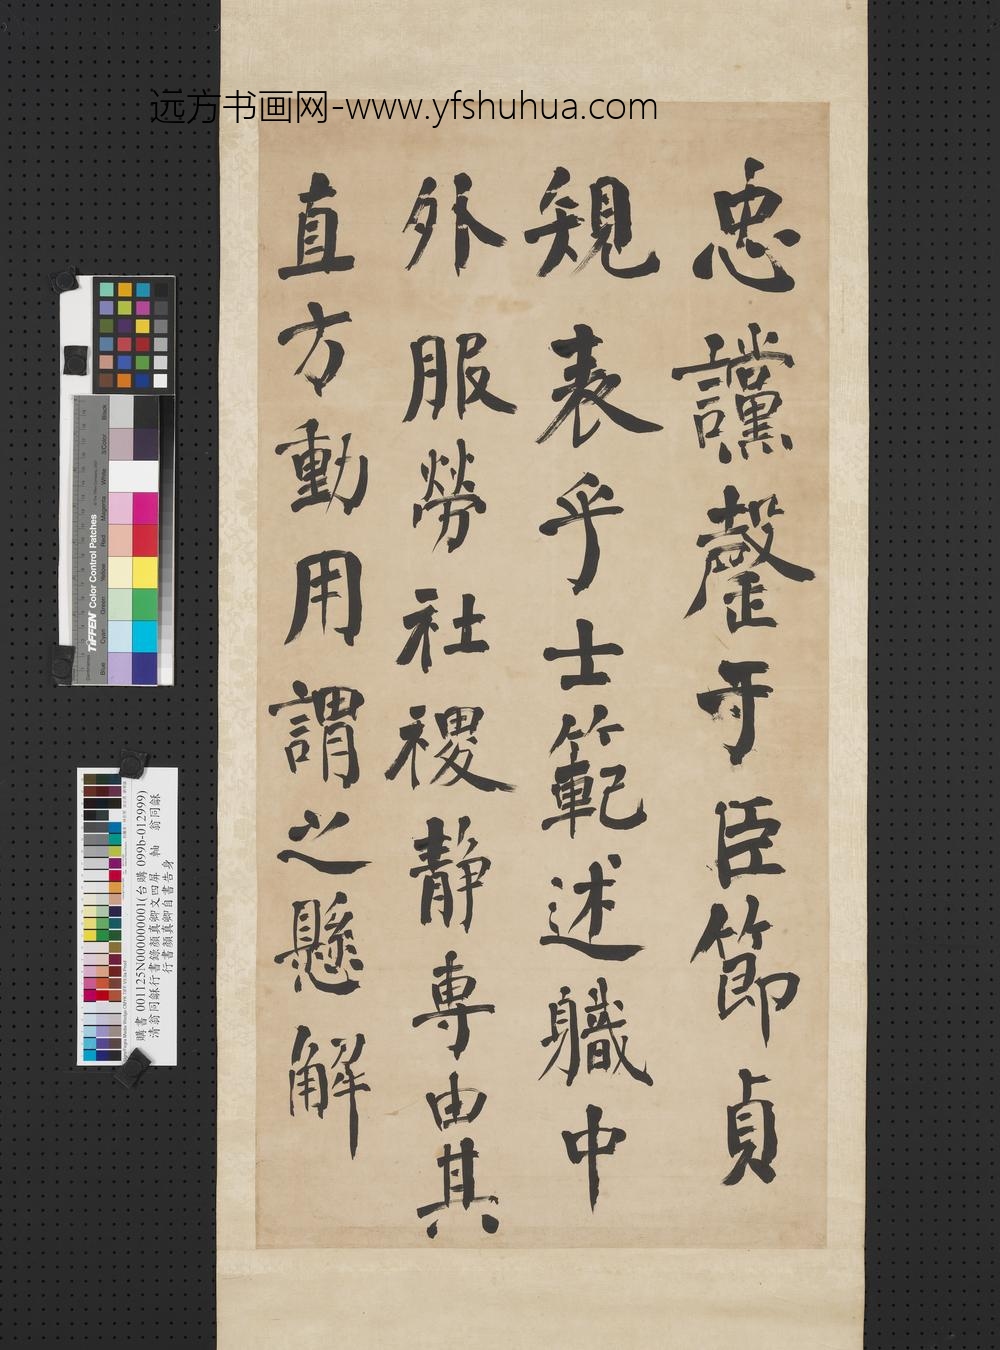 远方书画网-www.yfshuhua.com
忠讜罄于臣節貞
規表乎士範述職中
外服勞社稷静專由其
直方動用謂之懸解
TIFFEN Color Control Patches
Blue
Cyan
Green
Yellow
Red
Magenta
White
3/Color
Black
購書 001125N000000001(台購 099b-012999)
清翁同龢行書錄顏真卿文四屏 軸 翁同龢
行書顏真卿自書告身